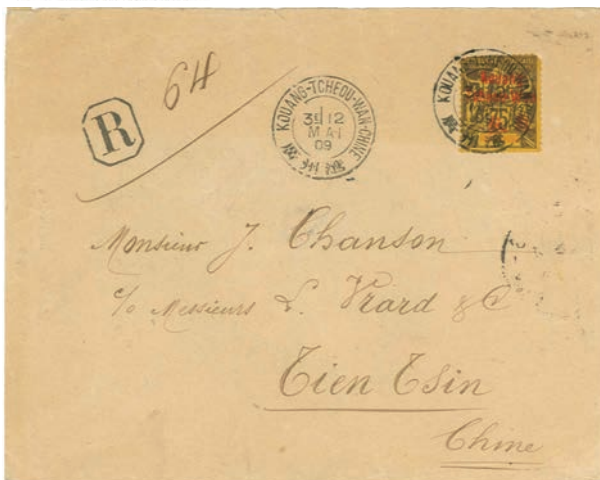 64
R
KOUANG-TCHEOU-WAN-CHINE
3E 12
MAI
09
KOUANG
75
Monsieur J. Chanson
c/o Messieurs L. Vrard & C°
Tien Tsin
Chine